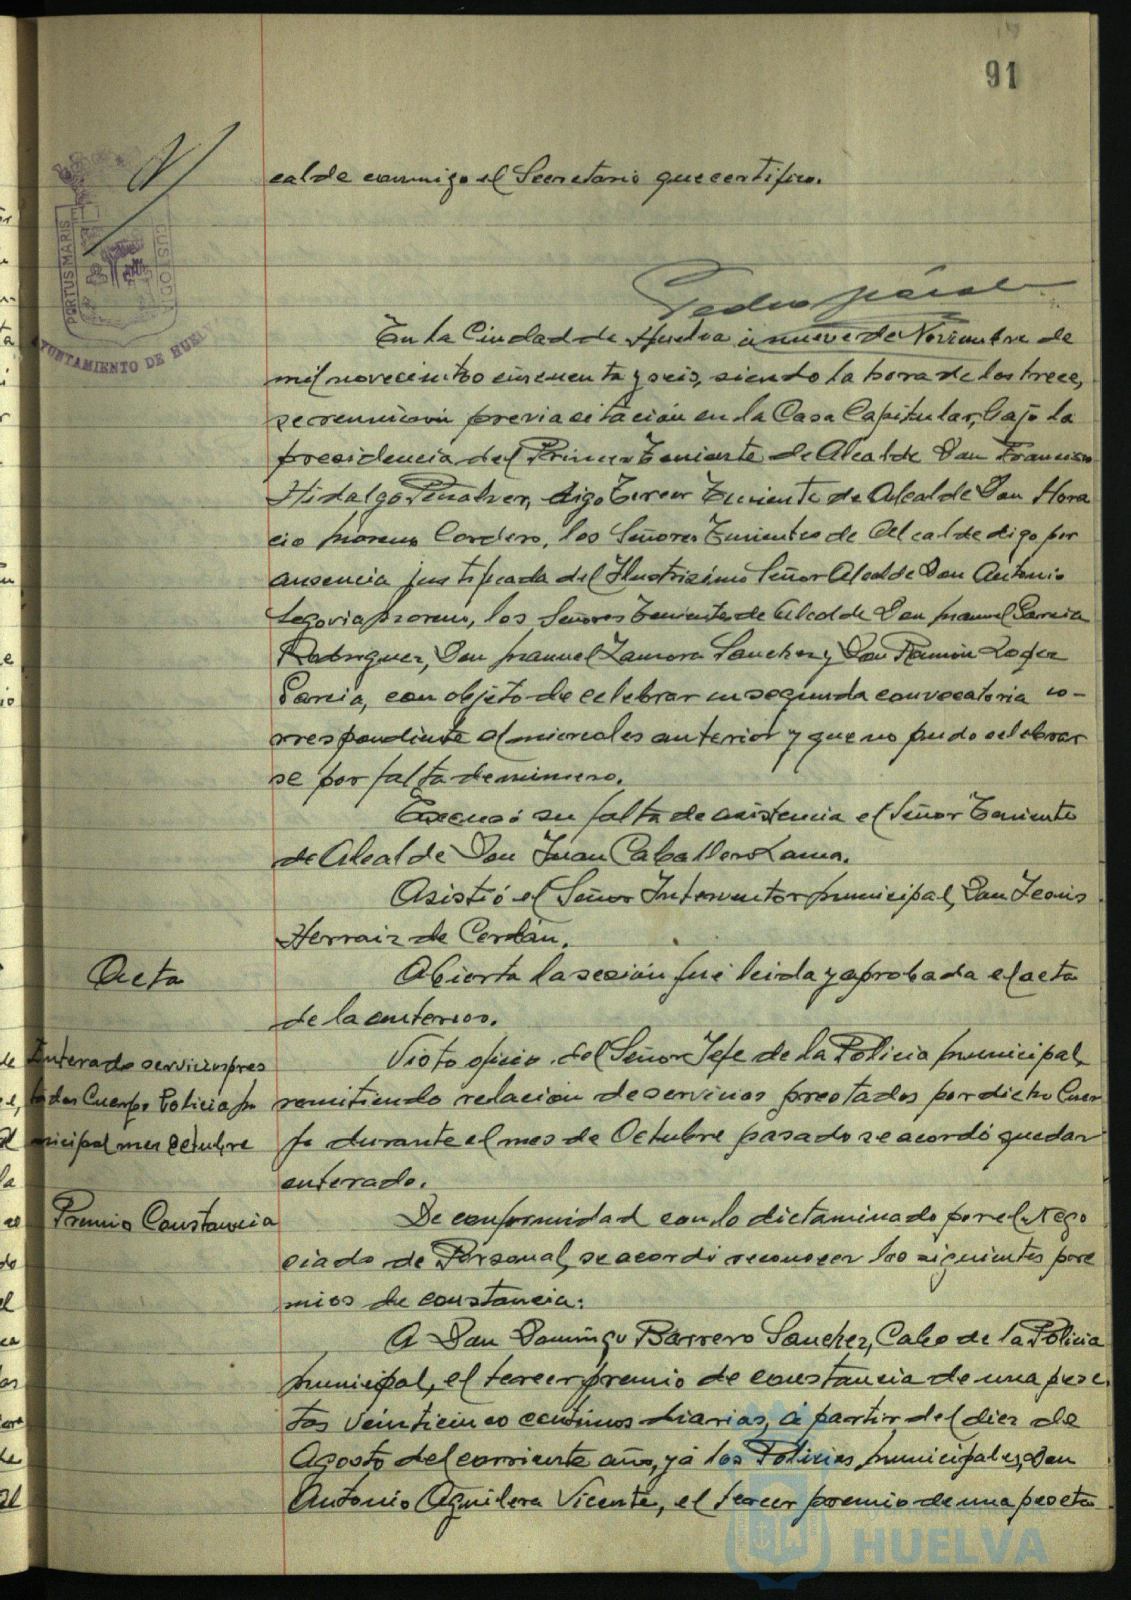 91
PORTUS MARIS CUSTODIA
AYUNTAMIENTO DE HUELVA
calde conmigo el Secretario que certifico.
Pedro
En la Ciudad de Huelva a nueve de Noviembre de
mil novecientos cincuenta y seis, siendo la hora de las trece,
se reunieron previa citación en la Casa Capitular, bajo la
presidencia del Primer Teniente de Alcalde Don Francisco
Hidalgo Peñalver, digo Tercer Teniente de Alcalde Don Hora
cio Moreno Cordero, los Señores Tenientes de Alcalde digo por
ausencia justificada del Ilustrisimo Señor Alcalde Don Antonio
Segovia Moreno, los Señores Tenientes de Alcalde Don Manuel Garcia
Rodriguez, Don Manuel Zamora Sanchez y Don Ramón Lopez
Garcia, con objeto de celebrar en segunda convocatoria co-
rrespondiente al miercoles anterior y que no pudo celebrar
se por falta de número.
Excusó su falta de asistencia el Señor Teniente
de Alcalde Don Juan Caballero Lama.
Asistió el Señor Interventor municipal, Don
Herraiz de Cerdán.
Acta
Abierta la sesión fué leida y aprobada el acta
de la anterior.
Enterado servicios pres
tados Cuerpo Policia mu
nicipal mes octubre
Visto oficio del Señor Jefe de la Policia municipal,
remitiendo relación de servicios prestados por dicho Cuer
po durante el mes de Octubre pasado se acordó quedar
enterado.
Premio Constancia
De conformidad con lo dictaminado por el Nego
ciado de Personal, se acordó reconocer los siguientes pre
mios de constancia:
A Don Domingo Barrero Sanchez, Cabo de la Policia
municipal, el tercer premio de constancia de una pese
tas veinticinco centimos diarias, a partir del diez de
Agosto del corriente año, y á los Policias municipales, Don
Antonio Aguilera Vicente, el tercer premio de una peseta
HUELVA